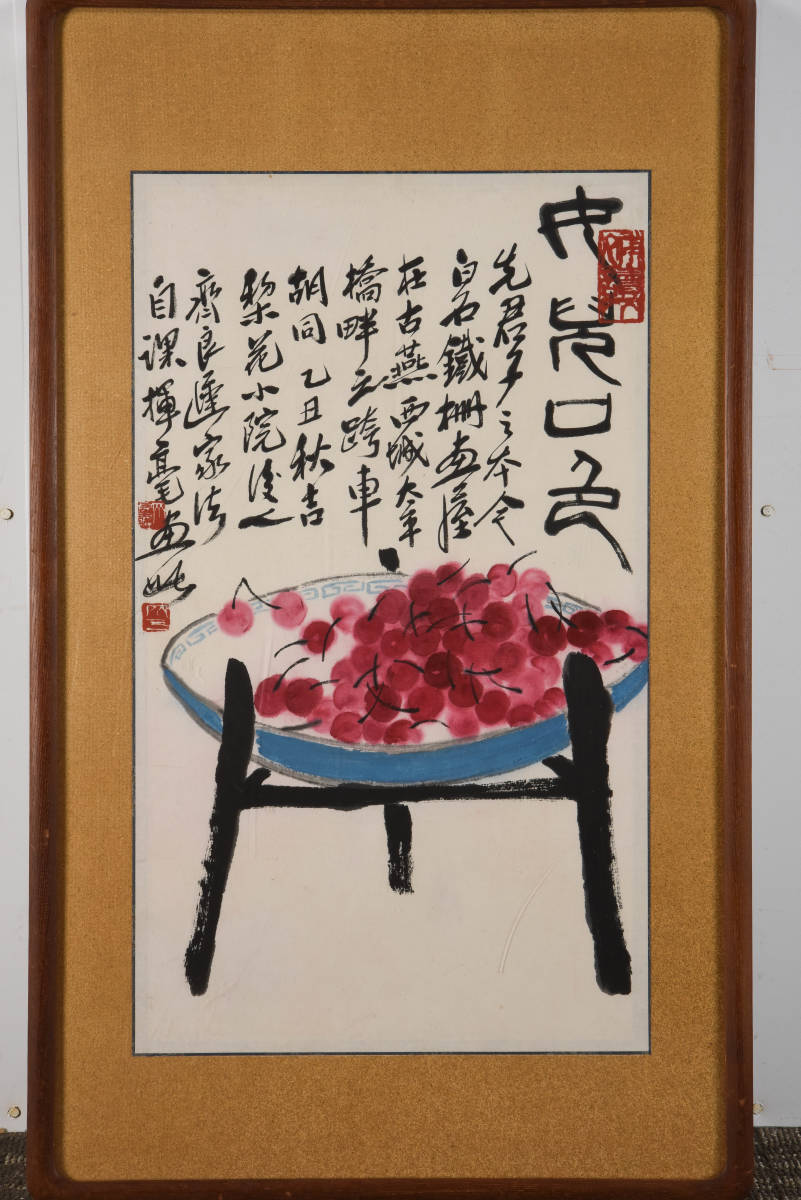 女兒口色
先君子之本今
白石鐵柵画屋
在古燕西城太平
橋畔之跨車
胡同乙丑秋吉
梨花小院後人
齊良遲家法
自課揮毫画此